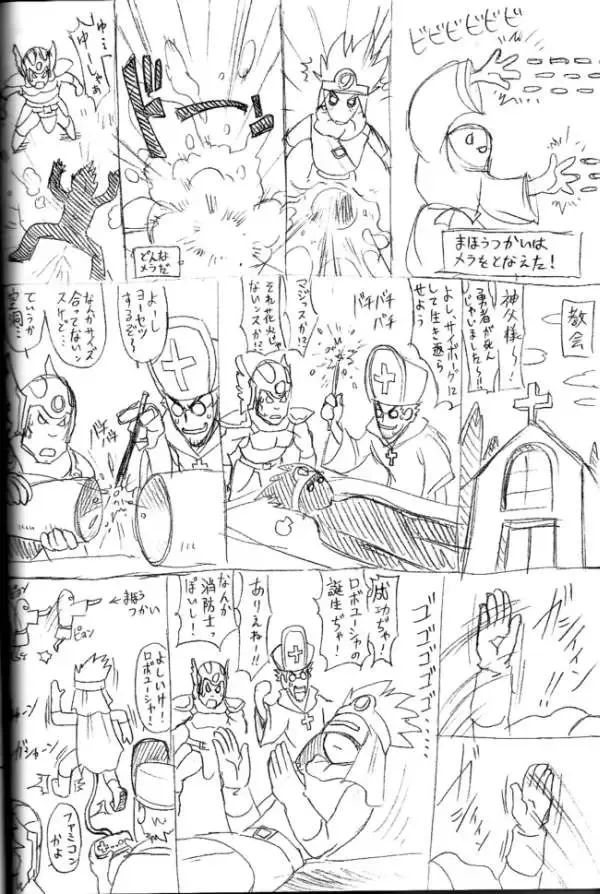 ビビビビビビ
まほうつかいは
メラをとなえた!
ドーン
どんな
メラだ
ゆ…
ゆーしゃぁ
教会
神父様〜!
勇者が死ん
じゃいました〜!!
よし、サイボーグに
して生き返ら
せよう
バチバチ
バチ
マジッスか!?
それ花火じゃ
ないンスか!?
よーし
ヨーセツ
するぞ〜
バチ
バチ
なんかサイズ
合ってない
スけど…
ていうか
空洞…
ゴゴゴゴゴ
成功ぢゃ!
ロボユーシャの
誕生ぢゃ!
ありえねー!!
なんか
消防士っ
ぽいし!
よしいけ!
ロボユーシャ!
まほう
つかい
ピュン
ガシャーン
ファミコン
かよ